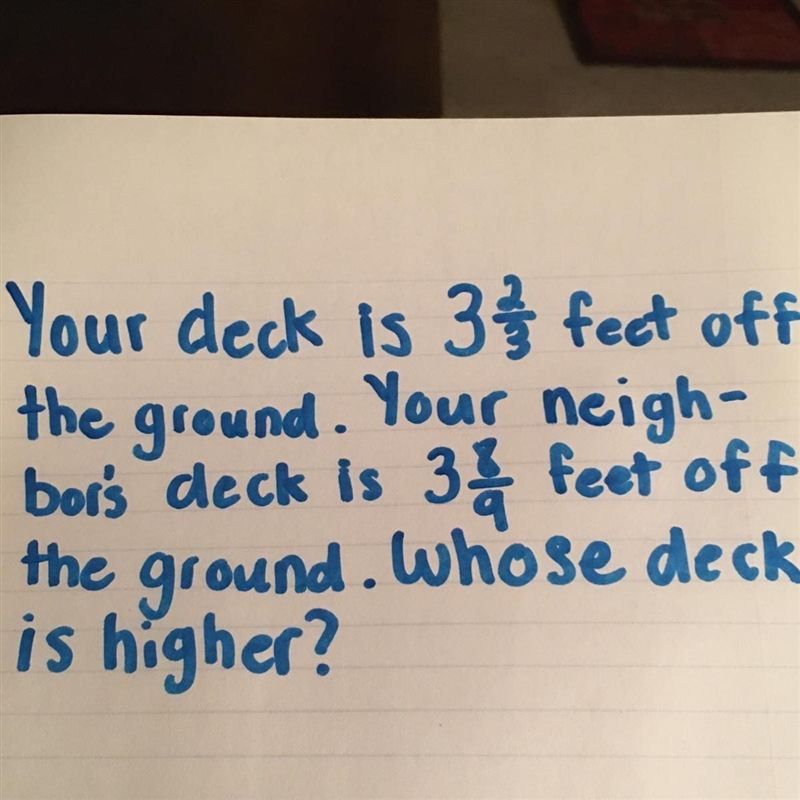 Your deck is 3 2/3 feet off
the ground. Your neigh-
bor's deck is 3 8/9 feet off
the ground. Whose deck
is higher?